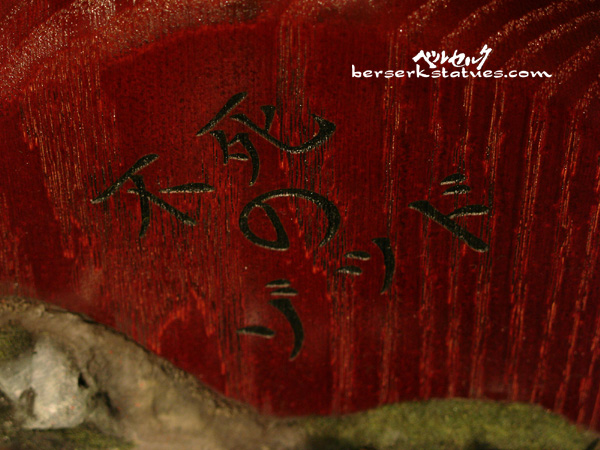 ベルセルク
berserkstatues.com
不死
の
ゾッド